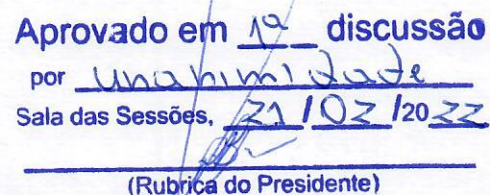 Aprovado em 1ª discussão
por unanimidade
Sala das Sessões, 21/02/2022
(Rubrica do Presidente)